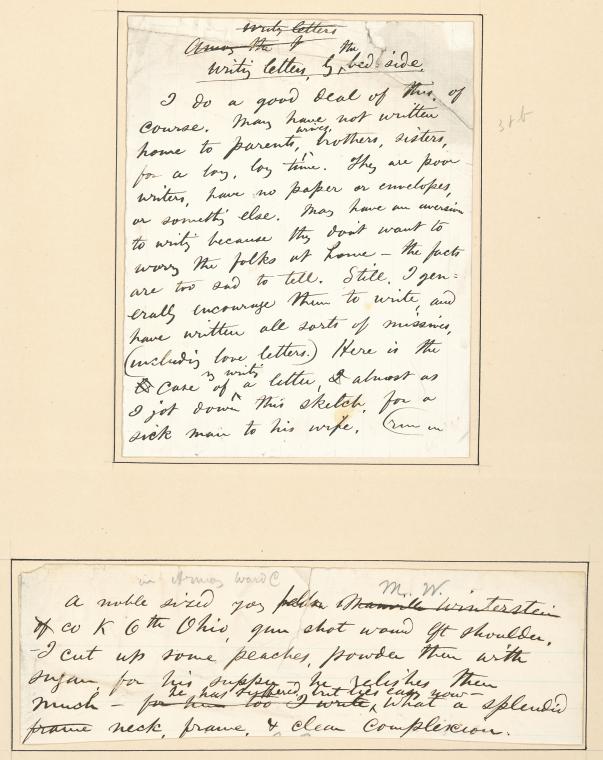 writing letters
Among the
the
writing letters, by bed-side.
I do a good deal of this, of
course. Many have not written
home to parents, wives, brothers, sisters,
for a long, long time. They are poor
writers, have no paper or envelopes,
or something else. Many have an aversion
to writing because they don't want to
worry the folks at home – the facts
are too sad to tell. Still, I gen-
erally encourage them to write, and
have written all sorts of missives,
(including love letters.) Here is the
my writing
case of a letter, & almost as
I jot down this sketch, for a
sick man to his wife. (run in
3 t b
in Armory Ward C
M. W.
A noble sized young Manville Winterstein
co K 6th Ohio, gun shot wound left shoulder.
– I cut up some peaches, powder them with
sugar, for his supper – he relishes them
he has suffered, but lies easy now –
much – for him too I write, What a splendid
frame neck, frame, & clean complexion.